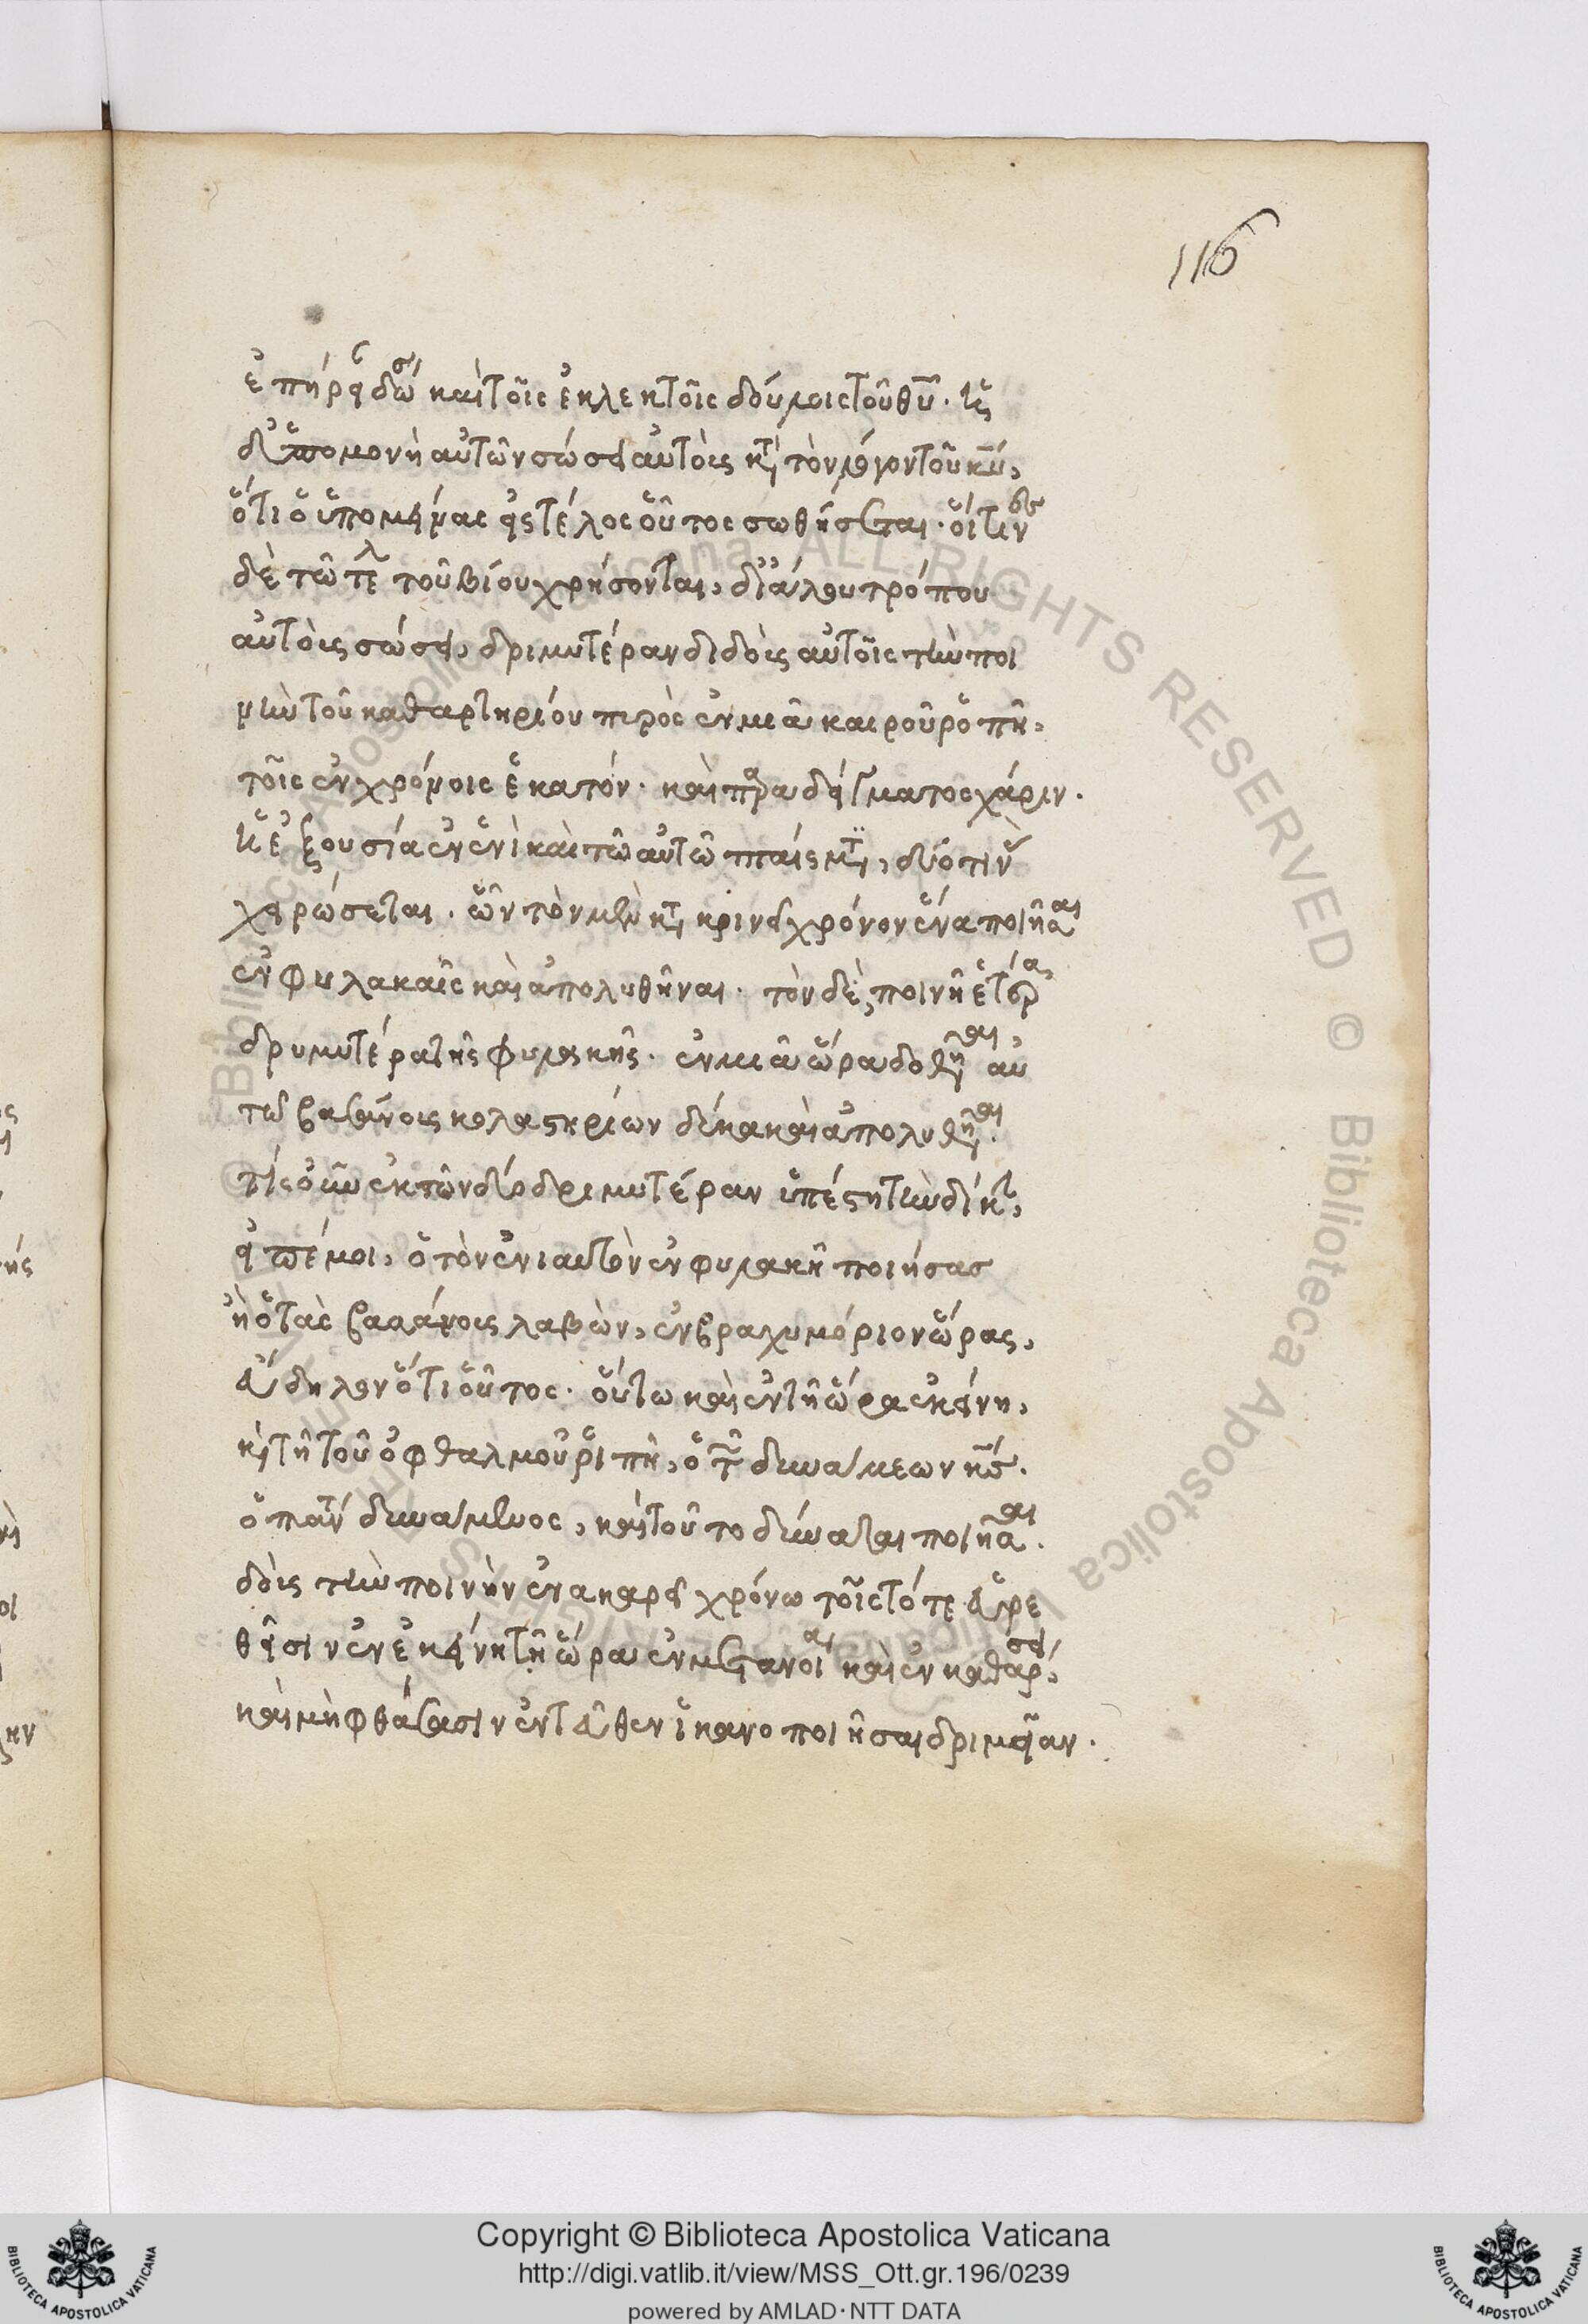 116
καὶ τοῖς ἐκλεκτοῖς δούλοις τοῦ θυ̅.
δι' ὑπομονὴ αὐτῶν σώσει αὐτοὺς κατὰ τὸν λέγοντα κν̅,
ὅτι ὁ ὑπομείνας εἰς τέλος οὗτος σωθήσεται. οἵτινες
δὲ τῶ τοῦ βίου χρήσονται, δι' ἄλλου τρόπου
αὐτοὺς σώσει, δριμυτέραν διδοὺς αὐτοῖς τὴν ποι
νὴν τοῦ καθαρτηρίου πυρὸς ἐν μιᾶ καιροῦ ῥοπῆ,
τοῖς ἐν χρόνοις ἑκατόν. καὶ παραδείγματος χάριν.
ἡ ἐξουσία ἐν ἑνὶ καὶ τῶ αὐτῶ πταίσματι, δύο τινὰ
χειρώσεται. ὧν τὸν μὲν κατακρινεῖ χρόνον ἕνα ποιῆσαι
ἐν φυλακαῖς καὶ ἀπολυθῆναι. τὸν δὲ, ποινῆ ἑτέρα
δρυμυτέρα τῆς φυλακῆς. ἐν μιᾶ ὥρα δοθῆναι αὐ
τῶ βασάνους κολαστηρίων δέκα καὶ ἀπολυθῆναι.
τίς οὖν ἐκ τῶν δύο δριμυτέραν ὑπέστη τὴν δίκην,
εἰπέ μοι, ὁ τὸν ἐνιαυτὸν ἐν φυλακῆ ποιήσας
ἢ ὁ τὰς βασάνους λαβὼν, ἐν βραχυμόριον ὥρας,
εὔδηλον ὅτι οὗτος. οὕτω καὶ ἐν τῆ ὥρα ἐκείνη,
καὶ τῆ τοῦ ὀφθαλμοῦ ῥιπῆ, ὁ τῶν δυνάμεων κς̅.
ὁ πάντα δυνάμενος, καὶ τοῦτο δύναται ποιῆσαι.
δοὺς τὴν ποινὴν ἐν ἀκαρεῖ χρόνω τοῖς τότε εὑρε
θεῖσιν ἐν ἐκείνη τῆ ὥρα ἐν μετανοία καὶ ἐν καθάρσει,
καὶ μὴ φθάσασιν ἐντεῦθεν ἱκανοποιῆσαι δριμεῖαν.
© Biblioteca Apostolica Vaticana ALL RIGHTS RESERVED © Biblioteca Apostolica Vaticana
Copyright © Biblioteca Apostolica Vaticana
http://digi.vatlib.it/view/MSS_Ott.gr.196/0239
powered by AMLAD·NTT DATA
BIBLIOTECA APOSTOLICA VATICANA
BIBLIOTECA APOSTOLICA VATICANA